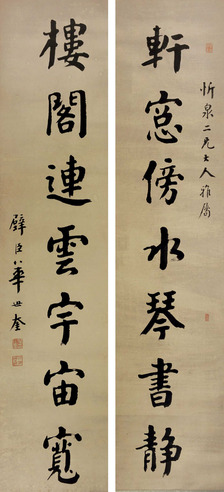 軒窓傍水琴書静
忻泉二兄大人雅屬
樓閣連雲宇宙寬
璧臣華世奎